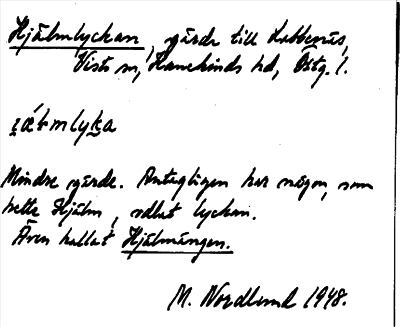 Hjälmlyckan, gärde till Labbenäs,
Vists sn, Hanekinds hd, Östg. l.
Mindre gärde. Antagligen har någon, som
hette Hjälm, odlat lyckan.
Även kallat Hjälmängen.
M. Nordlund 1948.